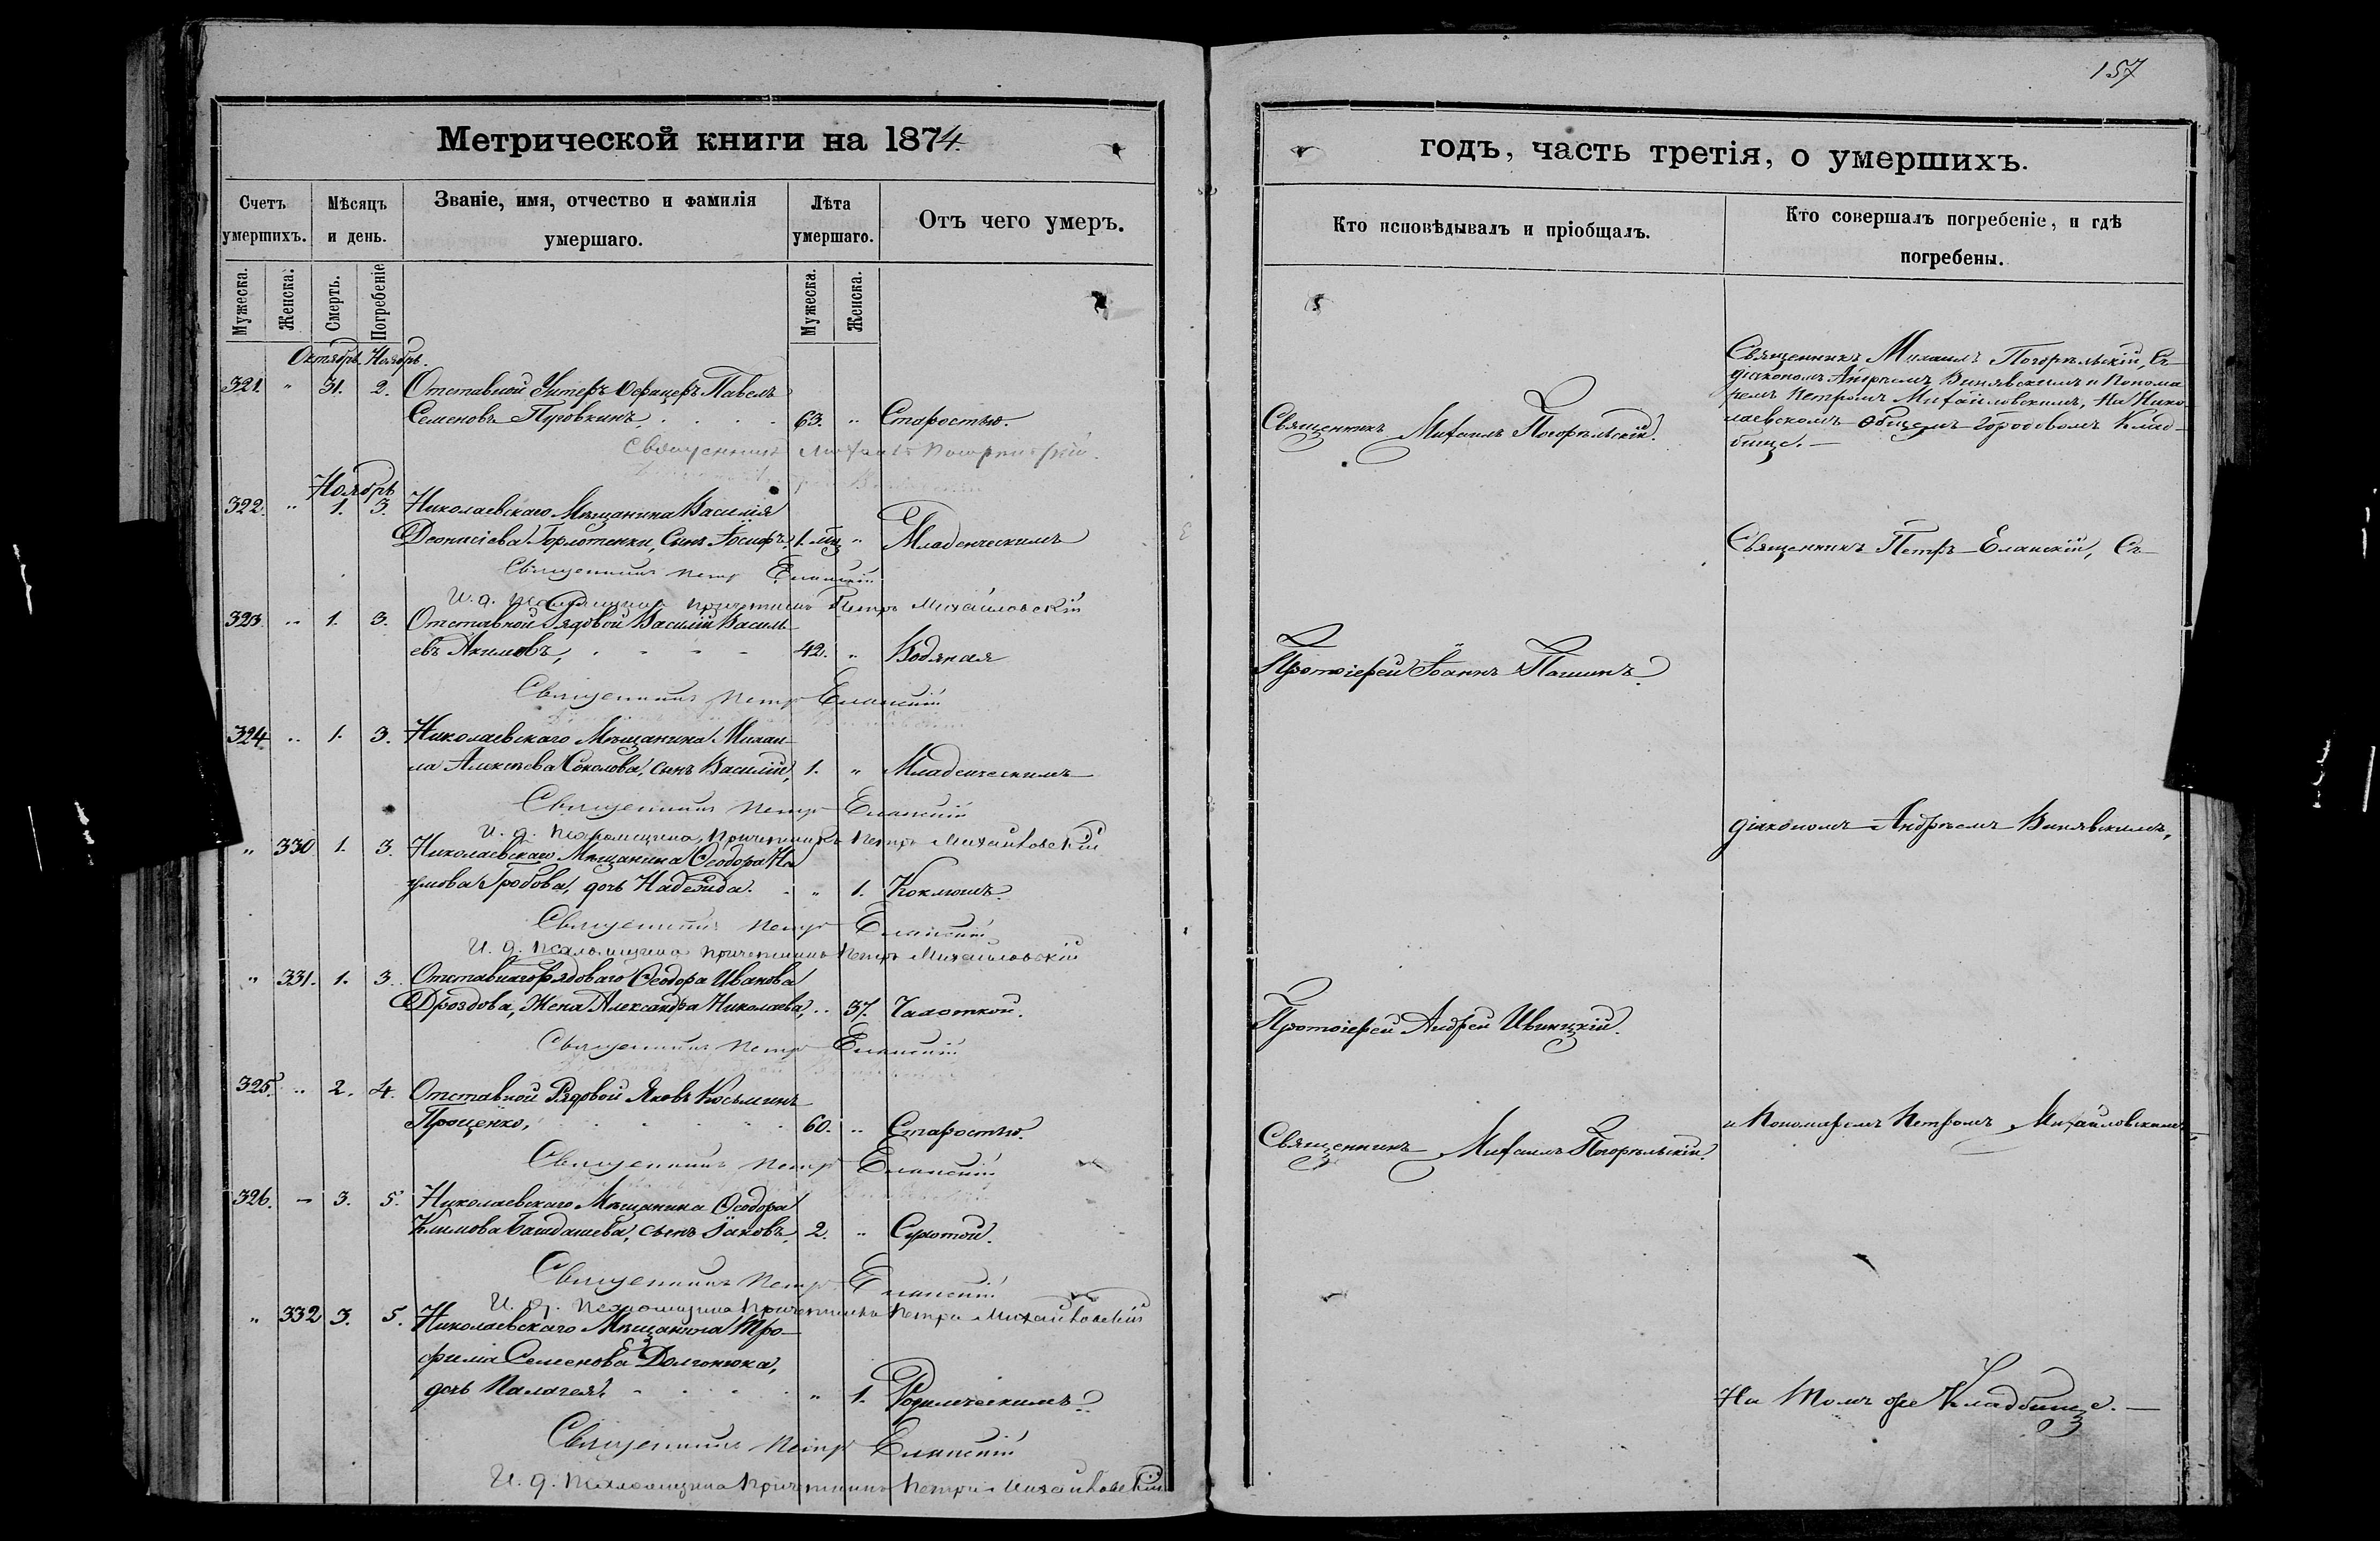 157
Метрической книги на 1874
годъ, часть третія, о умершихъ.
Счетъ умершихъ.
Мѣсяцъ и день.
Званіе, имя, отчество и фамилія умершаго.
Лѣта умершаго.
Отъ чего умеръ.
Кто исповѣдывалъ и пріобщалъ.
Кто совершалъ погребеніе, и гдѣ погребены.
Мужеска.
Женска.
Смерть.
Погребеніе
Мужеска.
Женска.
Октябрь Ноябрь.
321. " 31. 2. Отставной Унтеръ Офицеръ Павелъ
Семеновъ Пуровкинъ, 63. " Старостью.
Священникъ Михаилъ Погорѣльскій.
Ноябрь
322. " 1. 3. Николаевскаго Мѣщанина Василія
Деонисіева Горлотенки, Сынъ Іосифъ, 1. мц " Младенческимъ
Священникъ Петръ Еланскій
И. д. псаломщика причетникъ Петръ Михайловскій
323. " 1. 3. Отставной Рядовой Василій Василь-
евъ Акимовъ, 42. " Водяная
Священникъ Петръ Еланскій
324. " 1. 3. Николаевскаго Мѣщанина Михаи-
ла Алексѣева Соколова, сынъ Василій, 1. " Младенческимъ
Священникъ Петръ Еланскій
И. д. псаломщика, причетникъ Петръ Михайловскій
" 330 1. 3. Николаевскаго Мѣщанина Ѳеодора На
умова Гробова, дочь Надежда. " 1. Коклюшъ.
Священникъ Петръ Еланскій
И. д. псаломщика причетникъ Петръ Михайловскій
" 331. 1. 3. Отставнаго рядоваго Ѳеодора Иванова
Дроздова, Жена Александра Николаева, " 37. Чахоткой.
Священникъ Петръ Еланскій
325. " 2. 4. Отставной Рядовой Яковъ Косьминъ
Проценко, 60. " Старостью.
Священникъ Петръ Еланскій
326. - 3. 5. Николаевскаго Мѣщанина Ѳеодора
Климова Башдашева, сынъ Іаковъ, 2. " Сухотой.
Священникъ Петръ Еланскій
И. д. псаломщика причетникъ Петръ Михайловскій
" 332 3. 5. Николаевскаго Мѣщанина Тро-
фима Семенова Долгонюка,
дочь Палагея, " 1. Родимческимъ.
Священникъ Петръ Еланскій
И. д. псаломщика причетникъ Петръ Михайловскій
Священникъ Михаилъ Погорѣльскій.
Протоіерей Іоаннъ Пашинъ.
Протоіерей Андрей Ивицкій.
Священникъ Михаилъ Погорѣльскій.
Священникъ Михаилъ Погорѣльскій, Съ
діакономъ Андреемъ Винявскимъ и Понома
ремъ Петромъ Михайловскимъ, На Нико
лаевскомъ Общемъ Городовомъ Клад-
бище. —
Священникъ Петръ Еланскій, Съ
діакономъ Андреемъ Винявскимъ,
и Пономаремъ Петромъ Михайловскимъ
На томъ же Кладбище. —